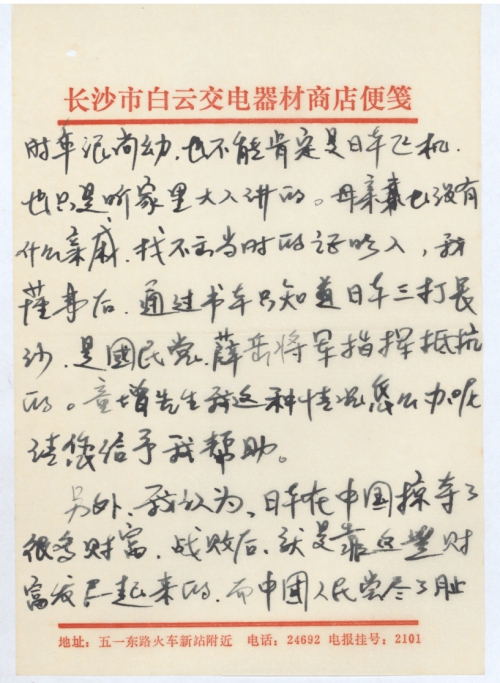 长沙市白云交电器材商店便笺
时年很尚幼、也不能肯定是日军飞机.
也只是听家里大人讲的。母亲也没有
什么亲戚.找不到当时的证明人,我
懂事后.通过书本只知道日军三打长
沙.是國民党.薛岳将军指挥抵抗
的。童增先生我这种情况怎么办呢
请您给予我帮助。
另外.我认为、日军在中国掠夺了
很多财富.战败后.就是靠这些财
富发展起来的.而中國人民尝尽了
地址:五一东路火车新站附近 电话:24692 电报挂号:2101